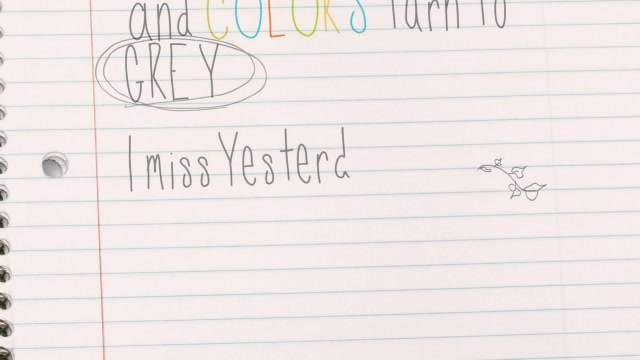 and COLORS Turn To
GREY
I miss Yesterd